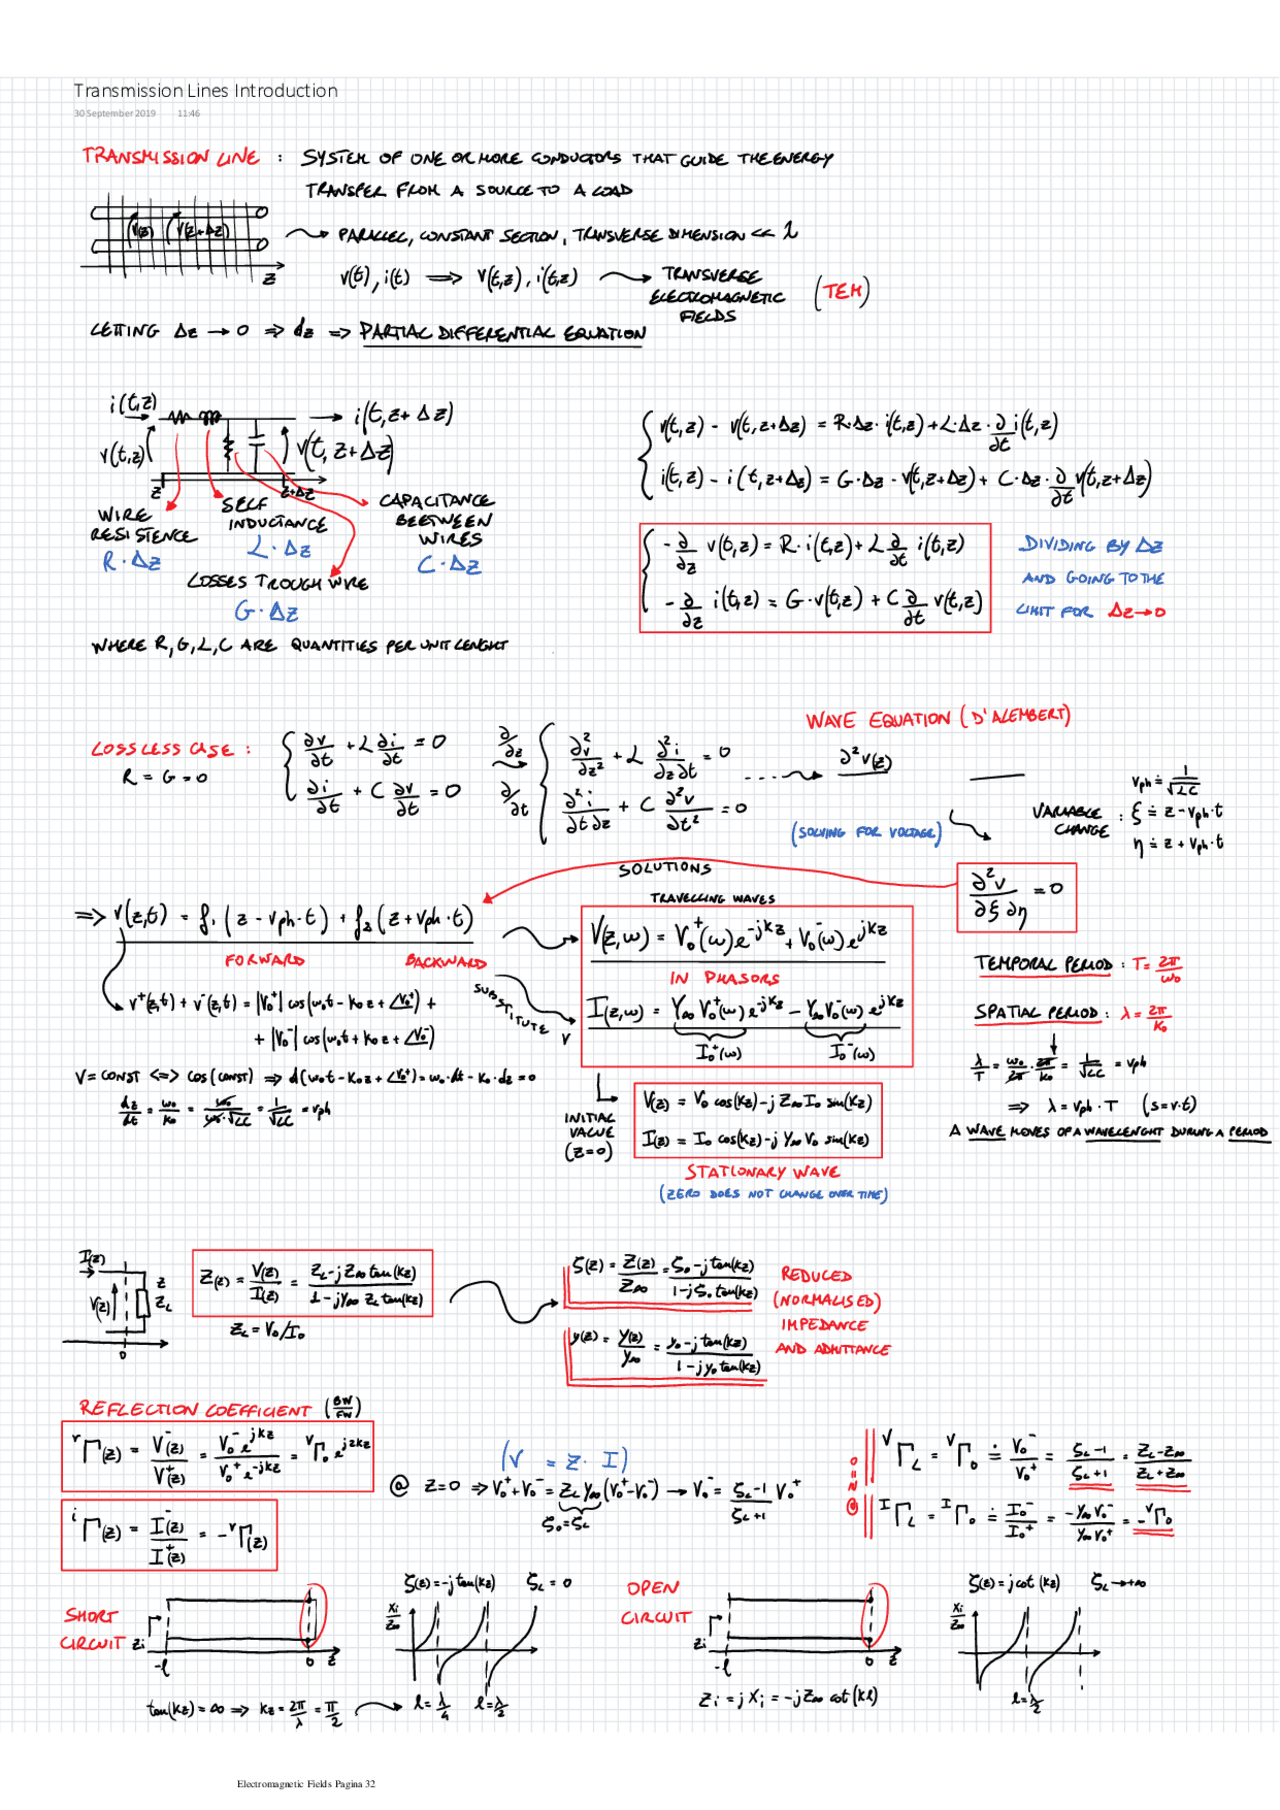 Transmission Lines Introduction
30 September 2019 11:46
TRANSMISSION LINE : SYSTEM OF ONE OR MORE CONDUCTORS THAT GUIDE THE ENERGY
TRANSFER FROM A SOURCE TO A LOAD
V(z) V(z+Δz)
z
PARALLEL, CONSTANT SECTION, TRANSVERSE DIMENSION << λ
v(t), i(t) ⟹ v(t,z), i(t,z)
TRANSVERSE
ELECTROMAGNETIC
FIELDS
(TEM)
LETTING Δz → 0 ⇒ dz ⇒ PARTIAL DIFFERENTIAL EQUATION
i(t,z) i(t, z+Δz)
v(t,z) v(t, z+Δz)
z z+Δz
WIRE
RESISTENCE
R·Δz
SELF
INDUCTANCE
L·Δz
CAPACITANCE
BEETWEEN
WIRES
C·Δz
LOSSES TROUGH WIRE
G·Δz
WHERE R, G, L, C ARE QUANTITIES PER UNIT LENGHT
v(t,z) - v(t,z+Δz) = R·Δz·i(t,z) + L·Δz·∂/∂t i(t,z)
i(t,z) - i(t,z+Δz) = G·Δz·v(t,z+Δz) + C·Δz·∂/∂t v(t,z+Δz)
-∂/∂z v(t,z) = R·i(t,z) + L ∂/∂t i(t,z)
-∂/∂z i(t,z) = G·v(t,z) + C ∂/∂t v(t,z)
DIVIDING BY Δz
AND GOING TO THE
LIMIT FOR Δz→0
WAVE EQUATION (D'ALEMBERT)
LOSSLESS CASE :
R = G = 0
∂v/∂t + L ∂i/∂t = 0
∂i/∂t + C ∂v/∂t = 0
∂/∂z
∂/∂t
∂²v/∂z² + L ∂²i/∂z∂t = 0
∂²i/∂t∂z + C ∂²v/∂t² = 0
∂²v(z)
(SOLVING FOR VOLTAGE)
VARIABLE
CHANGE :
v_ph ≐ 1/√LC
ξ ≐ z - v_ph·t
η ≐ z + v_ph·t
∂²v/∂ξ∂η = 0
SOLUTIONS
⇒ v(z,t) = f₁(z - v_ph·t) + f₂(z + v_ph·t)
FORWARD BACKWARD
v⁺(z,t) + v⁻(z,t) = |V₀⁺| cos(ω₀t - k₀z + ∠V₀⁺) +
+ |V₀⁻| cos(ω₀t + k₀z + ∠V₀⁻)
V = CONST <=> COS(CONST) ⇒ d(ω₀t - k₀z + ∠V₀⁺) = ω₀·dt - k₀·dz = 0
dz/dt = ω₀/k₀ = ω₀/ω₀·√LC = 1/√LC = v_ph
SUBSTITUTE V
TRAVELLING WAVES
V(z,ω) = V₀⁺(ω)e^-jkz + V₀⁻(ω)e^jkz
IN PHASORS
I(z,ω) = Y∞ V₀⁺(ω)e^-jkz - Y∞ V₀⁻(ω)e^jkz
I₀⁺(ω) I₀⁻(ω)
INITIAL
VALUE
(z=0)
V(z) = V₀ cos(kz) - j Z∞ I₀ sin(kz)
I(z) = I₀ cos(kz) - j Y∞ V₀ sin(kz)
STATIONARY WAVE
(ZERO DOES NOT CHANGE OVER TIME)
TEMPORAL PERIOD : T = 2π/ω₀
SPATIAL PERIOD : λ = 2π/k₀
λ/T = ω₀/2π · 2π/k₀ = 1/√LC = v_ph
⇒ λ = v_ph·T (s=v·t)
A WAVE MOVES OF A WAVELENGHT DURING A PERIOD
I(z)
V(z)
z
Z_L
0
Z(z) = V(z)/I(z) = Z_L - jZ∞ tan(kz) / 1 - jY∞ Z_L tan(kz)
Z_L = V₀/I₀
ζ(z) = Z(z)/Z∞ = ζ₀ - j tan(kz) / 1 - jζ₀ tan(kz)
y(z) = Y(z)/Y∞ = y₀ - j tan(kz) / 1 - j y₀ tan(kz)
REDUCED
(NORMALISED)
IMPEDANCE
AND ADMITTANCE
REFLECTION COEFFICIENT (BW/FW)
ᵛΓ(z) = V⁻(z)/V⁺(z) = V₀⁻ e^jkz / V₀⁺ e^-jkz = ᵛΓ₀ e^j2kz
ⁱΓ(z) = I⁻(z)/I⁺(z) = -ᵛΓ(z)
(V = Z · I)
@ z=0 ⇒ V₀⁺+V₀⁻ = Z_L Y∞ (V₀⁺-V₀⁻) → V₀⁻ = ζ_L-1/ζ_L+1 V₀⁺
ζ₀=ζ_L
@ z=0
ⱽΓ_L = ⱽΓ₀ ≐ V₀⁻/V₀⁺ = ζ_L-1/ζ_L+1 = Z_L-Z∞/Z_L+Z∞
ᴵΓ_L = ᴵΓ₀ ≐ I₀⁻/I₀⁺ = -Y∞V₀⁻/Y∞V₀⁺ = -ⱽΓ₀
SHORT
CIRCUIT
Zi
-l 0 z
ζ(z) = -j tan(kz) ζ_L = 0
Xi/Z∞
tan(kz) = ∞ ⇒ kz = 2π/λ = π/2
l = λ/4 l = λ/2
OPEN
CIRCUIT
Zi
-l 0 z
ζ(z) = j cot(kz) ζ_L → +∞
Xi/Z∞
Zi = j Xi = -j Z∞ cot(kl)
l = λ/2
Electromagnetic Fields Pagina 32